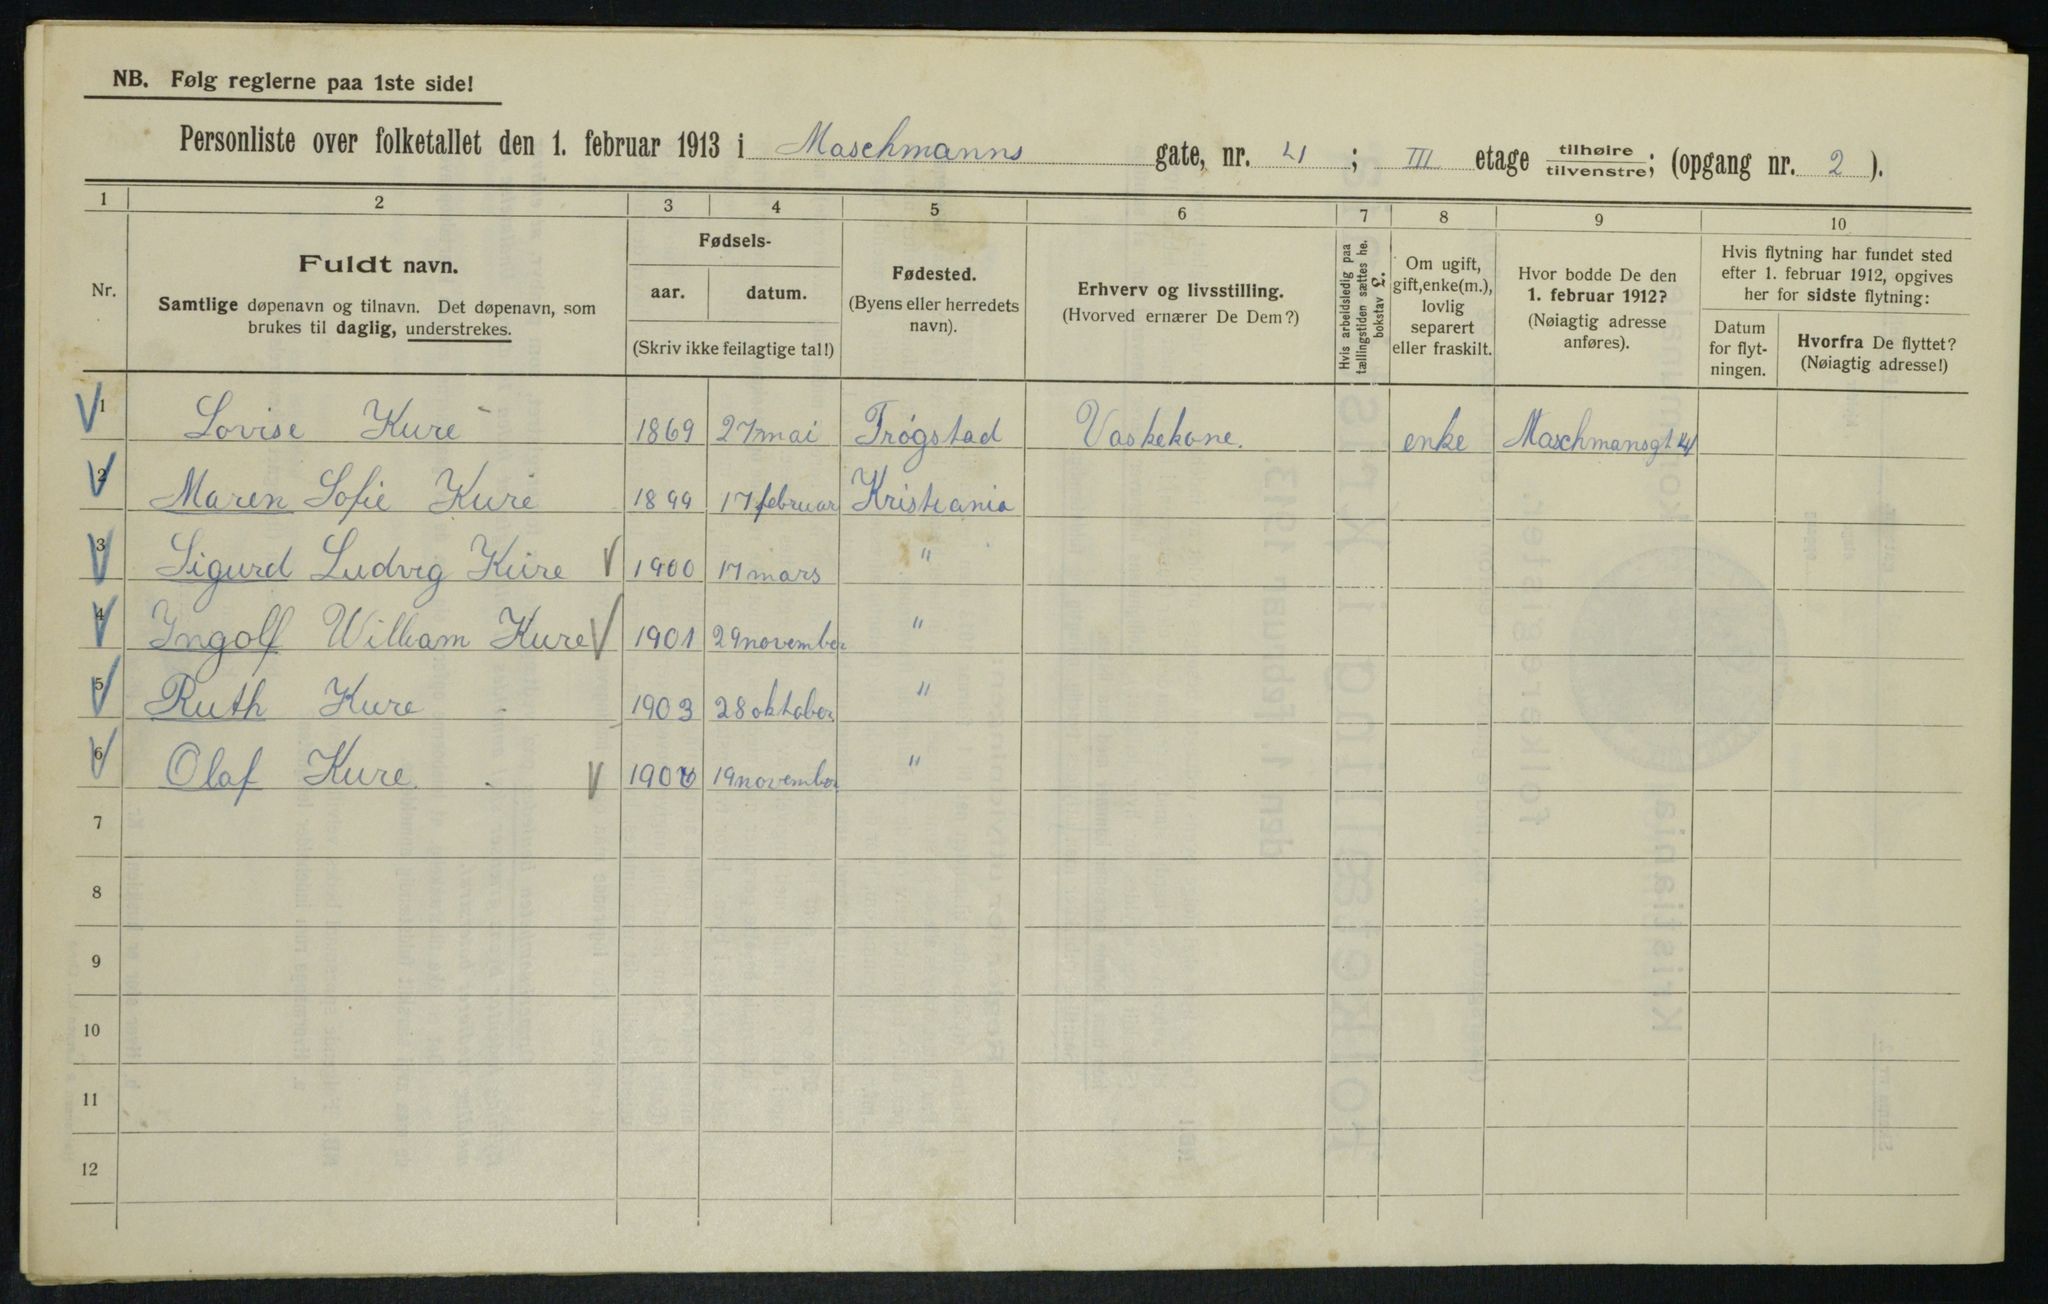 NB. Følg reglerne paa 1ste side!
Personliste over folketallet den 1. februar 1913 i Maschmanns gate, nr. 4 ; III etage tilhøire/tilvenstre; (opgang nr. 2 ).
1 2 3 4 5 6 7 8 9 10
Nr.
Fuldt navn.
Samtlige døpenavn og tilnavn. Det døpenavn, som
brukes til daglig, understrekes.
Fødsels-
aar. datum.
(Skriv ikke feilagtige tal!)
Fødested.
(Byens eller herredets
navn).
Erhverv og livsstilling.
(Hvorved ernærer De Dem?)
Hvis arbeidsledig paa
tællingstiden sættes he.
bokstav L.
Om ugift,
gift, enke(m.),
lovlig
separert
eller fraskilt.
Hvor bodde De den
1. februar 1912?
(Nøiagtig adresse
anføres).
Hvis flytning har fundet sted
efter 1. februar 1912, opgives
her for sidste flytning:
Datum
for flyt-
ningen.
Hvorfra De flyttet?
(Nøiagtig adresse!)
1 Lovise Kure 1869 27 mai Trøgstad Vaskekone. enke Maschmansgt 4
2 Maren Sofie Kure 1899 17 februar Kristiania
3 Sigurd Ludvig Kure 1900 17 mars "
4 Ingolf William Kure 1901 29 november "
5 Ruth Kure 1903 28 oktober "
6 Olaf Kure. 19 november "
7
8
9
10
11
12